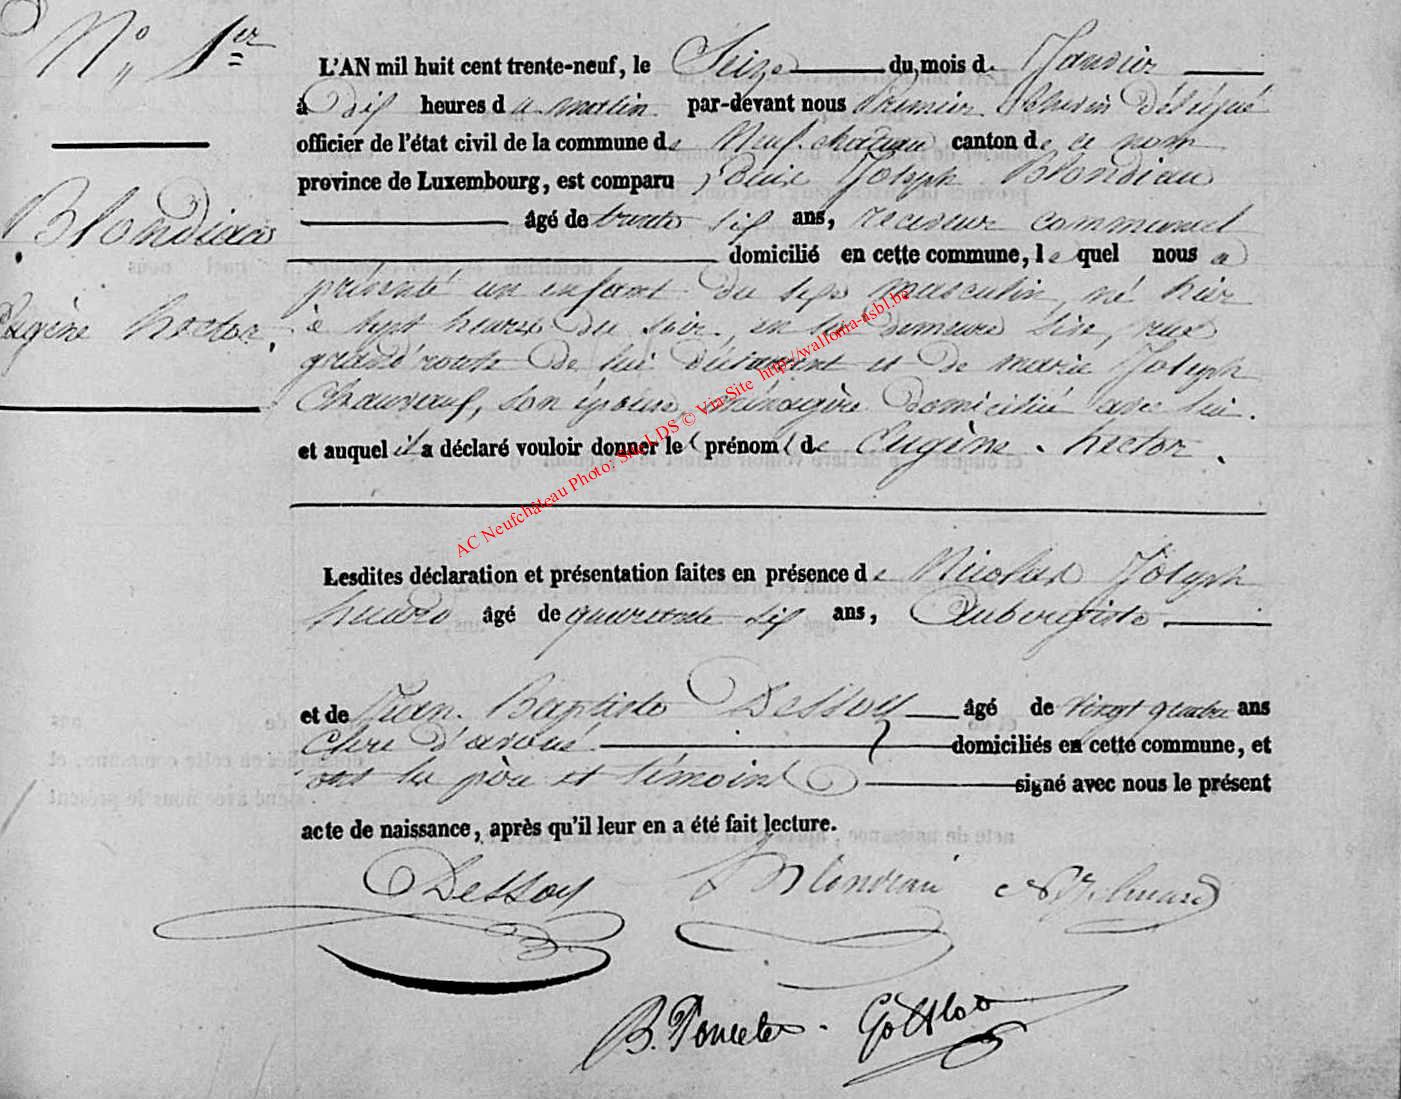 N° 1er
L'AN mil huit cent trente-neuf, le Seize du mois de Janvier
à Dix heures du matin par-devant nous Premier Echevin Délégué
officier de l'état civil de la commune de Neufchateau canton de ce nom
province de Luxembourg, est comparu Louis Joseph Blondiau
Blondiau
âgé de trente six ans, receveur communal
domicilié en cette commune, lequel nous a
présenté un enfant du sexe masculin, né hier
Eugène hector.
à sept heures du soir, en sa demeure sise, rue
grand'route de lui déclarant et de marie Joseph
son épouse, ménagère domiciliée avec lui.
et auquel il a déclaré vouloir donner les prénoms de Eugène hector.
AC Neufchâteau Photo: Site LDS © Via Site http://wallonia-asbl.be
Lesdites déclaration et présentation faites en présence de Nicolas Joseph
huard âgé de quarante six ans, Aubergiste.
et de Jean Baptiste Dessoy âgé de vingt quatre ans
Clerc d'avoué domiciliés en cette commune, et
ont les père et témoins signé avec nous le présent
acte de naissance, après qu'il leur en a été fait lecture.
Dessoy Blondiau huard
B. Poncelet.